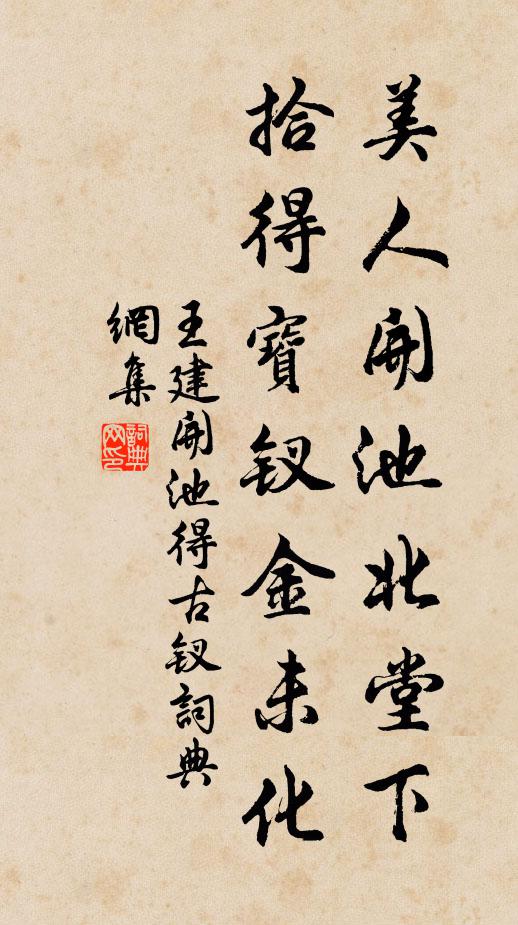 美人開池北堂下
拾得寶釵金未化
王建開池得古釵詞典
網集
詞典網印